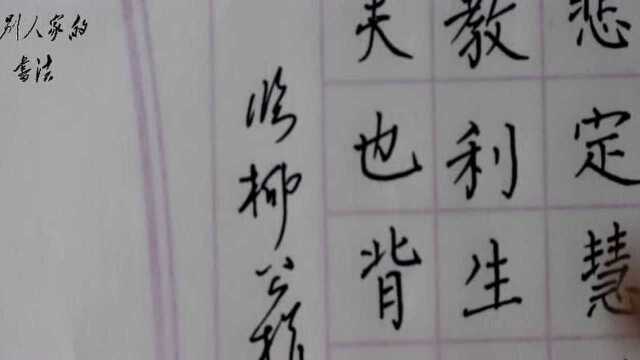 别人家的
书法
悲定慧
教利生
夫也背
临柳公